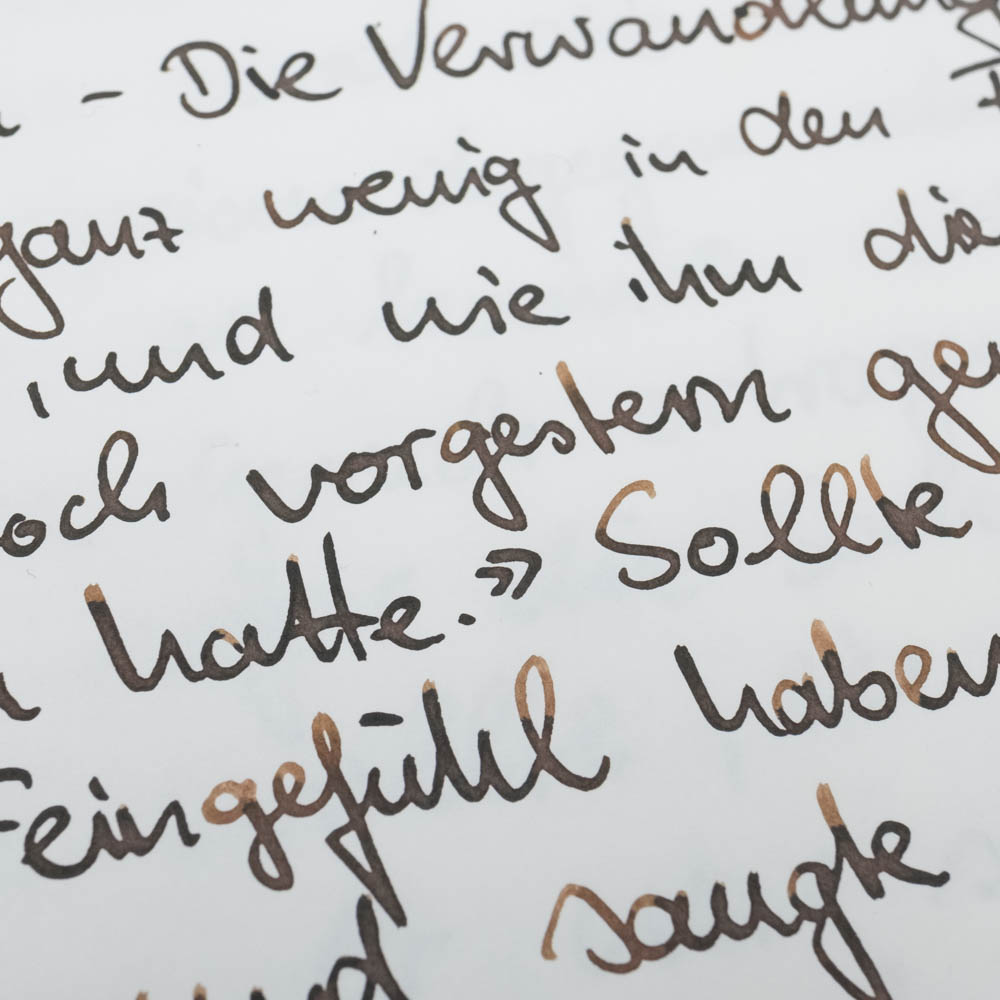 - Die Verwandlung
ganz wenig in den
, und wie ihm die
och vorgestern ge
hatte.» Sollte
Feingefühl haben
und saugte